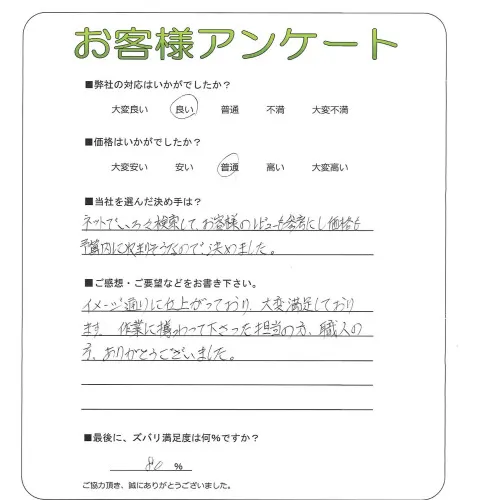 お客様アンケート
■弊社の対応はいかがでしたか？
大変良い 良い 普通 不満 大変不満
■価格はいかがでしたか？
大変安い 安い 普通 高い 大変高い
■当社を選んだ決め手は？
ネットでいろいろ検索して、お客様のレビューを参考にし価格も
予算内に収まりそうなので決めました。
■ご感想・ご要望などをお書き下さい。
イメージ通りに仕上がっており、大変満足しており
ます。作業に携わって下さった担当の方、職人の
方、ありがとうございました。
■最後に、ズバリ満足度は何%ですか？
80 %
ご協力頂き、誠にありがとうございました。